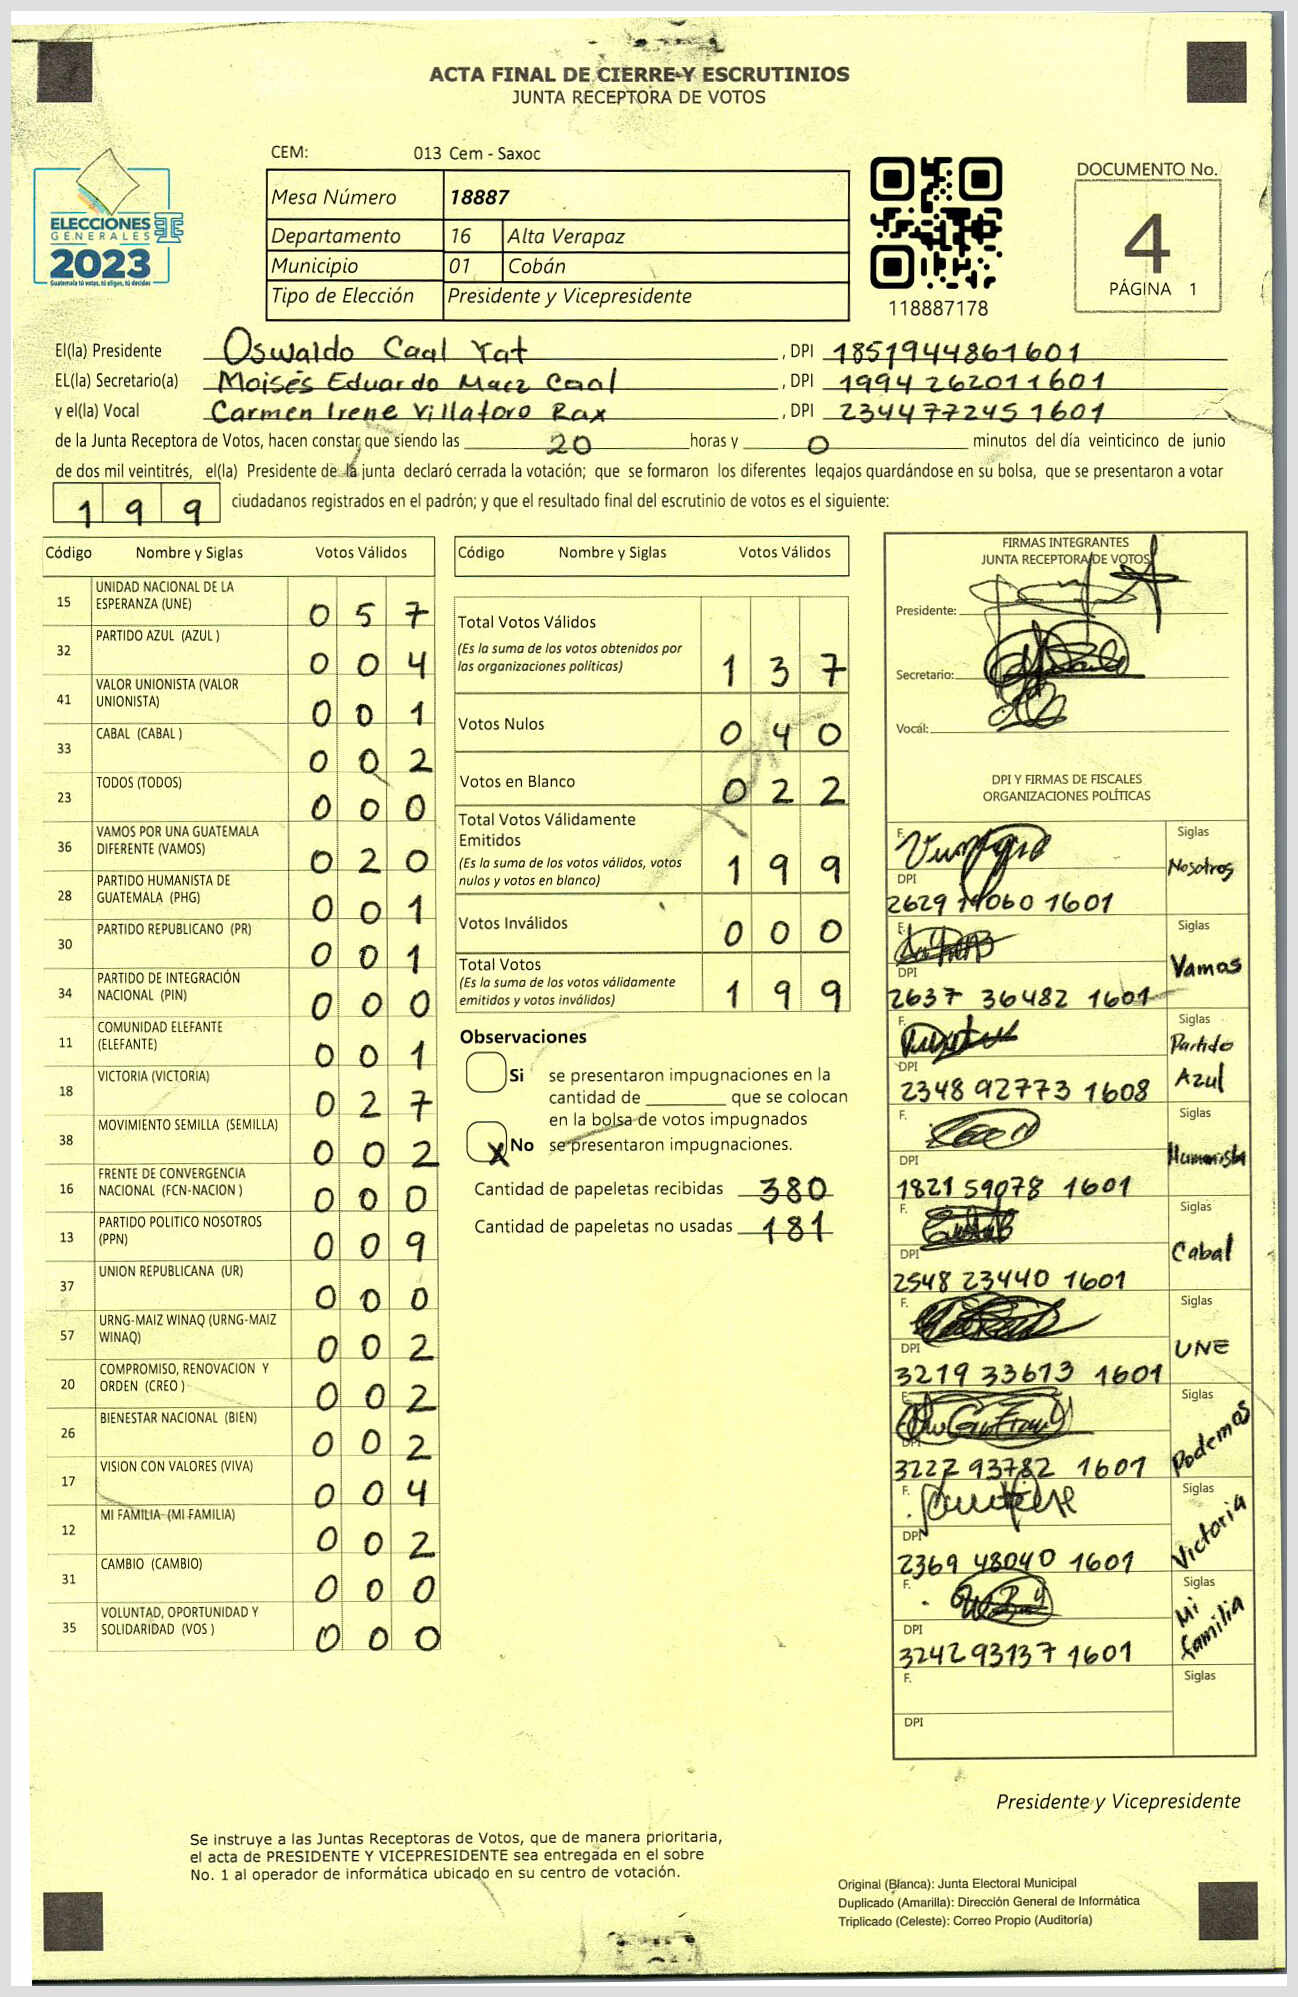 ACTA FINAL DE CIERRE Y ESCRUTINIOS
JUNTA RECEPTORA DE VOTOS
CEM: 013 Cem - Saxoc
DOCUMENTO No.
4
PÁGINA 1
ELECCIONES
GENERALES
2023
Guatemala tú votas, tú eliges, tú decides
Mesa Número 18887
Departamento 16 Alta Verapaz
Municipio 01 Cobán
Tipo de Elección Presidente y Vicepresidente
118887178
El(la) Presidente Oswaldo Caal Yat , DPI 1851944861601
EL(la) Secretario(a) Moisés Eduardo Macz Caal , DPI 1994 262011601
y el(la) Vocal Carmen Irene Villatoro Rax , DPI 2344772451601
de la Junta Receptora de Votos, hacen constar que siendo las 20 horas y 0 minutos del día veinticinco de junio
de dos mil veintitrés, el(la) Presidente de la junta declaró cerrada la votación; que se formaron los diferentes legajos guardándose en su bolsa, que se presentaron a votar
199 ciudadanos registrados en el padrón; y que el resultado final del escrutinio de votos es el siguiente:
Código Nombre y Siglas Votos Válidos
15 UNIDAD NACIONAL DE LA ESPERANZA (UNE) 057
32 PARTIDO AZUL (AZUL ) 004
41 VALOR UNIONISTA (VALOR UNIONISTA) 001
33 CABAL (CABAL ) 002
23 TODOS (TODOS) 000
36 VAMOS POR UNA GUATEMALA DIFERENTE (VAMOS) 020
28 PARTIDO HUMANISTA DE GUATEMALA (PHG) 001
30 PARTIDO REPUBLICANO (PR) 001
34 PARTIDO DE INTEGRACIÓN NACIONAL (PIN) 000
11 COMUNIDAD ELEFANTE (ELEFANTE) 001
18 VICTORIA (VICTORIA) 027
38 MOVIMIENTO SEMILLA (SEMILLA) 002
16 FRENTE DE CONVERGENCIA NACIONAL (FCN-NACION ) 000
13 PARTIDO POLITICO NOSOTROS (PPN) 009
37 UNION REPUBLICANA (UR) 000
57 URNG-MAIZ WINAQ (URNG-MAIZ WINAQ) 002
20 COMPROMISO, RENOVACION Y ORDEN (CREO ) 002
26 BIENESTAR NACIONAL (BIEN) 002
17 VISION CON VALORES (VIVA) 004
12 MI FAMILIA (MI FAMILIA) 002
31 CAMBIO (CAMBIO) 000
35 VOLUNTAD, OPORTUNIDAD Y SOLIDARIDAD (VOS ) 000
Código Nombre y Siglas Votos Válidos
Total Votos Válidos
(Es la suma de los votos obtenidos por
las organizaciones políticas) 137
Votos Nulos 040
Votos en Blanco 022
Total Votos Válidamente
Emitidos
(Es la suma de los votos válidos, votos
nulos y votos en blanco) 199
Votos Inválidos 000
Total Votos
(Es la suma de los votos válidamente
emitidos y votos inválidos) 199
Observaciones
Si se presentaron impugnaciones en la
cantidad de ________ que se colocan
en la bolsa de votos impugnados
X No se presentaron impugnaciones.
Cantidad de papeletas recibidas 380
Cantidad de papeletas no usadas 181
FIRMAS INTEGRANTES
JUNTA RECEPTORA DE VOTOS
Presidente:
Secretario:
Vocal:
DPI Y FIRMAS DE FISCALES
ORGANIZACIONES POLÍTICAS
F. Siglas
Nosotros
DPI
2629 19060 1601
F. Siglas
Vamos
DPI
2637 36482 1601
F. Siglas
Partido
Azul
DPI
2348 92773 1608
F. Siglas
Humanista
DPI
1821 59078 1601
F. Siglas
Cabal
DPI
2548 23440 1601
F. Siglas
UNE
DPI
3219 33613 1601
F. Siglas
Podemos
DPI
3222 93782 1601
F. Siglas
Victoria
DPI
2369 48040 1601
F. Siglas
Mi
familia
DPI
3242 93137 1601
F. Siglas
DPI
Presidente y Vicepresidente
Se instruye a las Juntas Receptoras de Votos, que de manera prioritaria,
el acta de PRESIDENTE Y VICEPRESIDENTE sea entregada en el sobre
No. 1 al operador de informática ubicado en su centro de votación.
Original (Blanca): Junta Electoral Municipal
Duplicado (Amarilla): Dirección General de Informática
Triplicado (Celeste): Correo Propio (Auditoría)